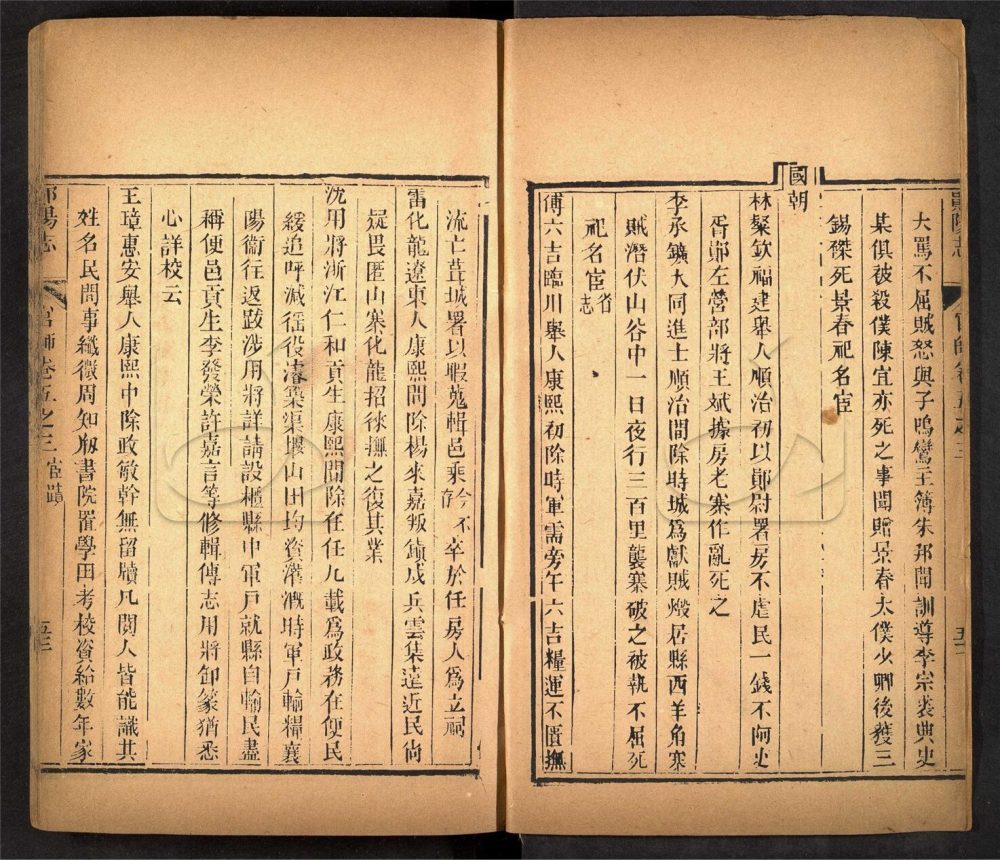 鄖陽志
官師卷五之三
五二
大罵不屈賊怒與子鳴鸞主簿朱邦聞訓導李宗裘典史
某俱被殺僕陳宜亦死之事聞贈景春太僕少卿後獲三
錫磔死景春祀名宦
國朝
林粲欽福建舉人順治初以鄖尉署房不虐民一錢不阿史
胥鄖左營部將王斌據房老寨作亂死之
李承鑛大同進士順治間除時城爲獻賊燬居縣西羊角寨
賊潛伏山谷中一日夜行三百里襲寨破之被執不屈死
祀名宦省志
傅六吉臨川舉人康熙初除時軍需旁午六吉糧運不匱撫
流亡葺城署以暇蒐輯邑乘存今不卒於任房人爲立祠
雷化龍遼東人康熙間除楊來嘉叛鎮戍兵雲集遠近民尙
疑畏匿山寨化龍招徠撫之復其業
沈用將浙江仁和貢生康熙間除在任九載爲政務在便民
緩追呼減徭役濬築渠堰山田均資灌溉時軍戸輸糧襄
陽衞往返跋涉用將詳請設櫃縣中軍戸就縣自輸民盡
稱便邑貢生李發榮許嘉言等修輯傳志用將卸篆猶悉
心詳校云
王璋惠安舉人康熙中除政敏幹無留牘凡閱人皆能識其
姓名民間事纖微周知剏書院置學田考校資給數年家
鄖陽志
官師卷五之三宦蹟
五三